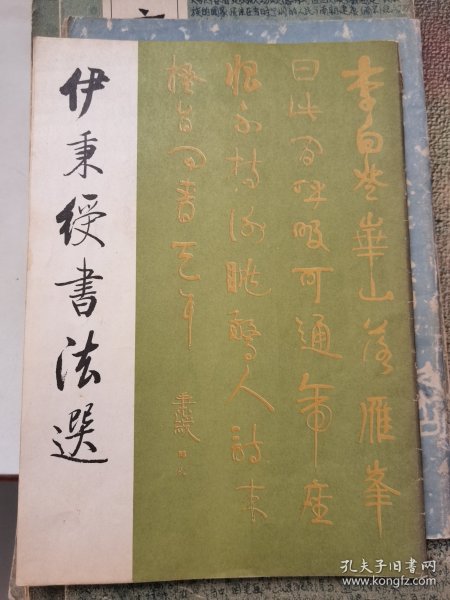 伊秉綬書法選
李白登華山落雁峯
曰此間呼吸可通帝座
恨不携謝朓驚人詩来
搔首問青天耳
秉綬
孔夫子旧书网
www.kongfz.com